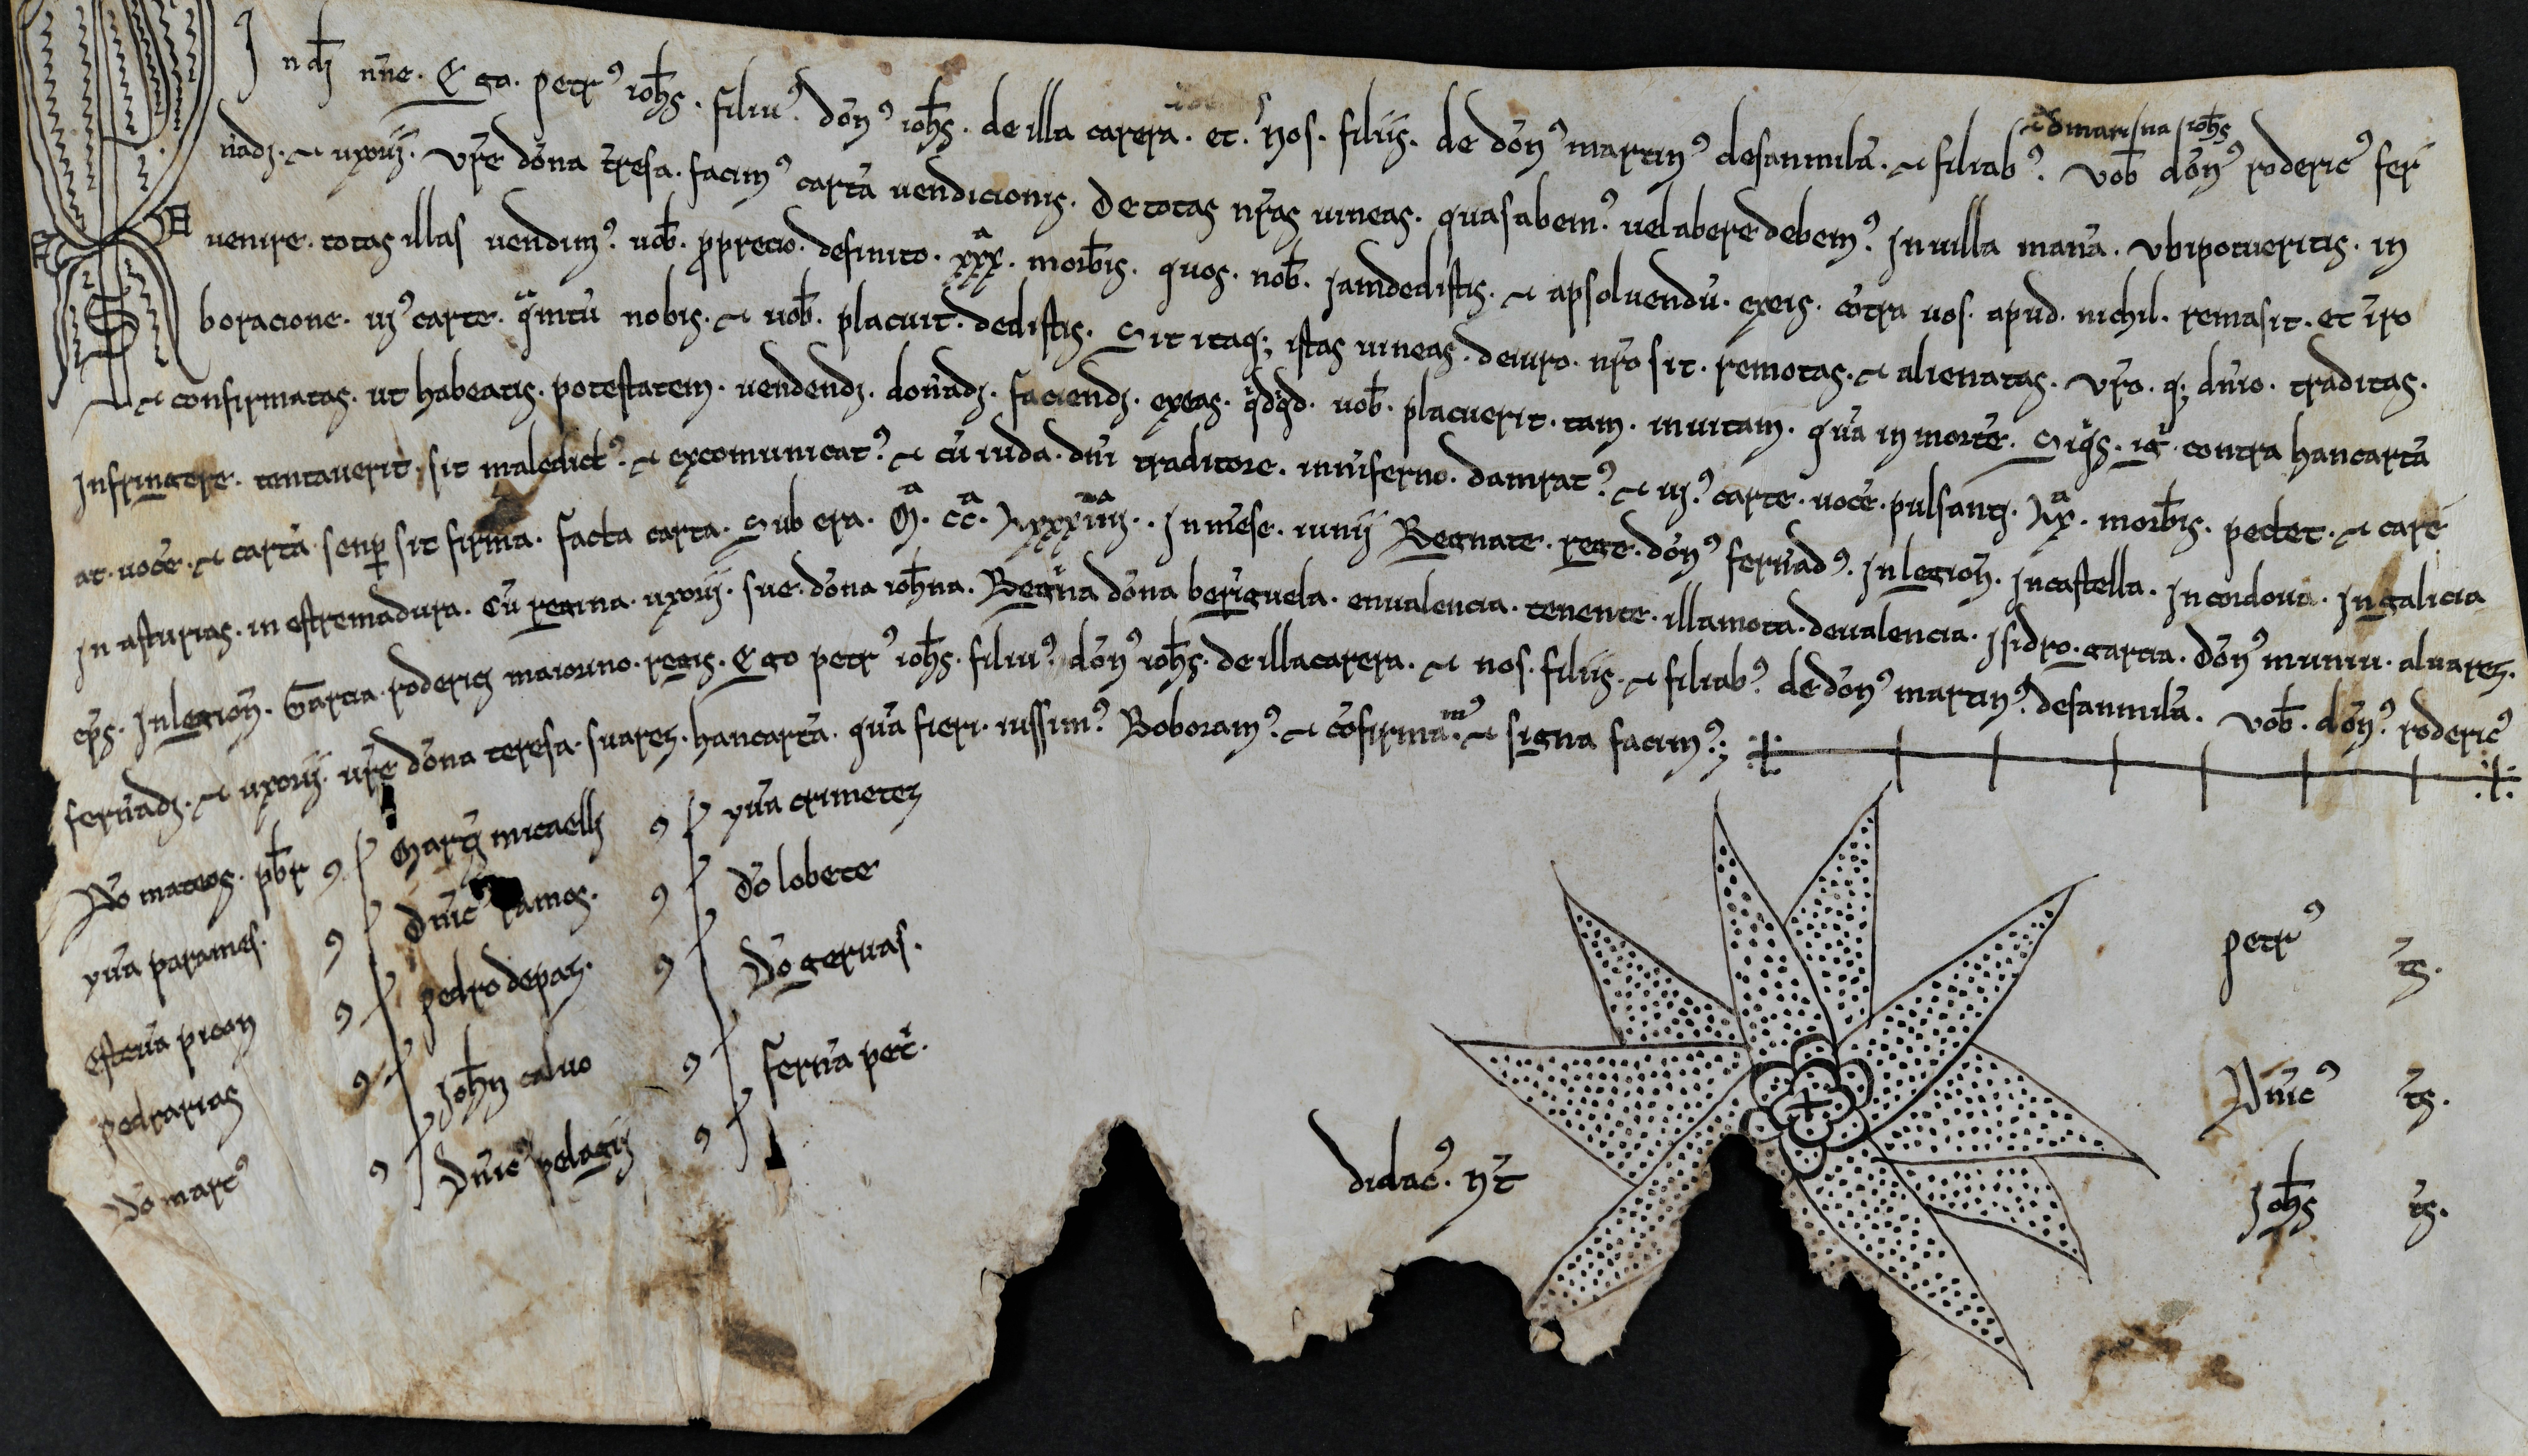 In dī nñe. Ego. petrꝰ ioħs. filiuꝰ. dōnꝰ ioħs. de illa carera. et. nos. filiis. de dōnꝰ martinꝰ desanmilā. ⁊ filiabꝰ. uoƀ dōnꝰ rodericꝰ fer
⁊ dmarina ioħs
nādi. ⁊ uxorij. ur̄e dōna tr̄esa. facimꝰ cartā uendicionis. De totas nr̄as uineas. quas abemꝰ. uel abere debemꝰ. In uilla mañā. Vbi potueritis. in
uenire. totas illas uendimꝰ. uoƀ. ꝓ precio. definito. xxxᵃ. morƀis. quos. noƀ. Iamdedistis. ⁊ apsoluendū. exeis. cōtra uos. apud. nichil. remasit. et īro
boracione. uiꝰ carte. qⁱntū nobis. ⁊ uoƀ. placuit. dedistis. Sit itaq; istas uineas. de iuro. nr̄o sit. remotas. ⁊ alienatas. Vr̄o. q; dn̄io. traditas.
⁊ confirmatas. ut habeatis. potestatem. uendendi. donādi. faciendi. exeas. qⁱdqⁱd. uoƀ. placuerit. tam. inuitam. quā in morte. Siqⁱs. igⁱ contra hancartā
Infringere. tentauerit. sit maledictꝰ. ⁊ excomunicatꝰ. ⁊ cū iuda. dn̄i traditore. in inferno. damnatꝰ. ⁊ uiꝰ. carte. uoce. pulsanti. Lxᵃ. morƀis. pectet. ⁊ care
at. uoce. ⁊ cartā senꝑ sit firma. Facta carta. Sub era. Mᵃ. CCᵃ. Lxxxiiiiᵃ. In mēse. iunij Regnate. rege. dōnꝰ fernādꝰ. In legioñ. In castella. In cordoua. In galicia
In asturias. in estremadura. Cū regina. uxorij. sue. dōna ioħna. Regⁱna dōna beriguela. enualencia. tenente. illamota. deualencia. Isidro. garcia. dōnꝰ muniu. aluarez.
ep̄s. In legioñ. Garcia. roderici maiorino. regis. Ego petrꝰ ioħs. filiuꝰ. dōnꝰ ioħs. de illacarera. ⁊ nos. filiis. ⁊ filiabꝰ. de dōnꝰ martinꝰ. desanmilā. Uoƀ. dōnꝰ. rodericꝰ
fernādi. ⁊ uxorij. ur̄e dōna teresa. suarez. hancartā. quā fieri. iussimꝰ. Roboramꝰ. ⁊ cōfirmāmꝰ. ⁊ signa facimꝰ;
Dō mateos. pƀr
yuā parames.
esteuā picon
pedrarias
Dō martꝰ
Martī micaelis
Dn̄icꝰ ramos.
pedro depaz.
Ioħn caluo
Dn̄icꝰ pelagij
yuā crimetez
dō lobete
Dō geruas.
Fernā pet̄.
didac̄. nt̄
petrꝰ ts̄.
Dn̄icꝰ ts̄.
Ioħs ts̄.